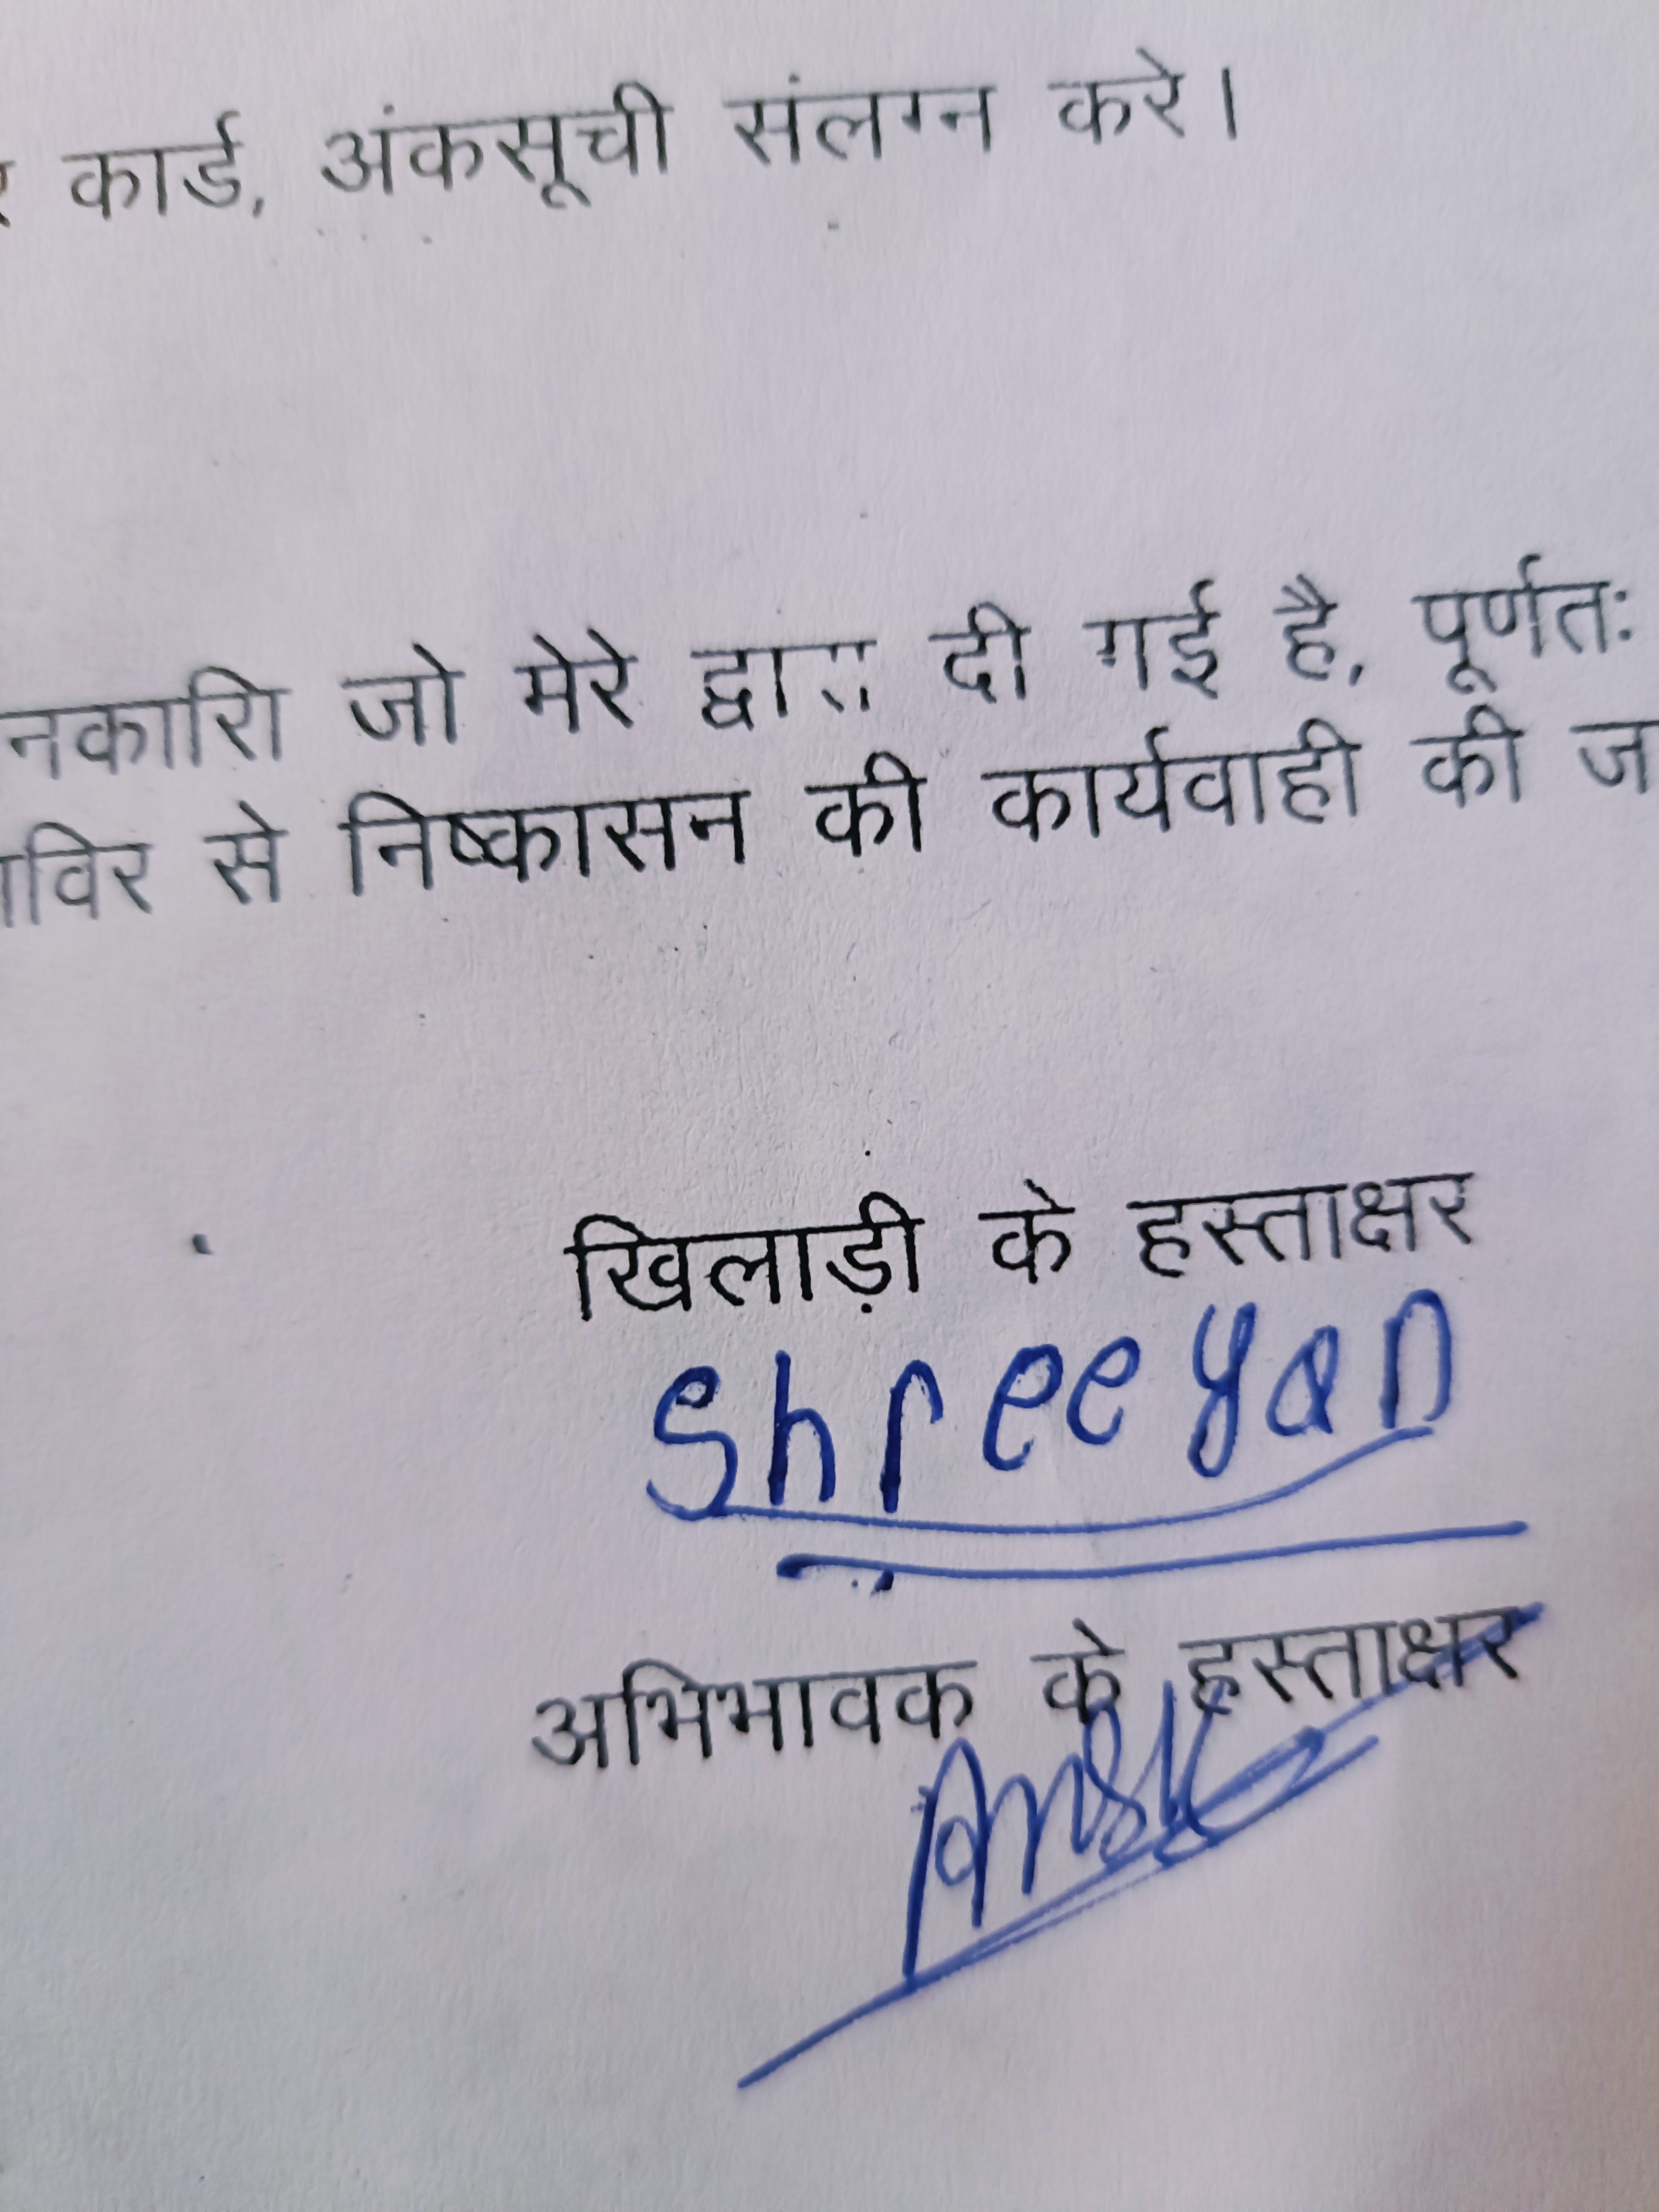 कार्ड, अंकसूची संलग्न करे।
जो मेरे द्वारा दी गई है, पूर्णतः
से निष्कासन की कार्यवाही की
खिलाड़ी के हस्ताक्षर
Shreeyan
अभिभावक के हस्ताक्षर